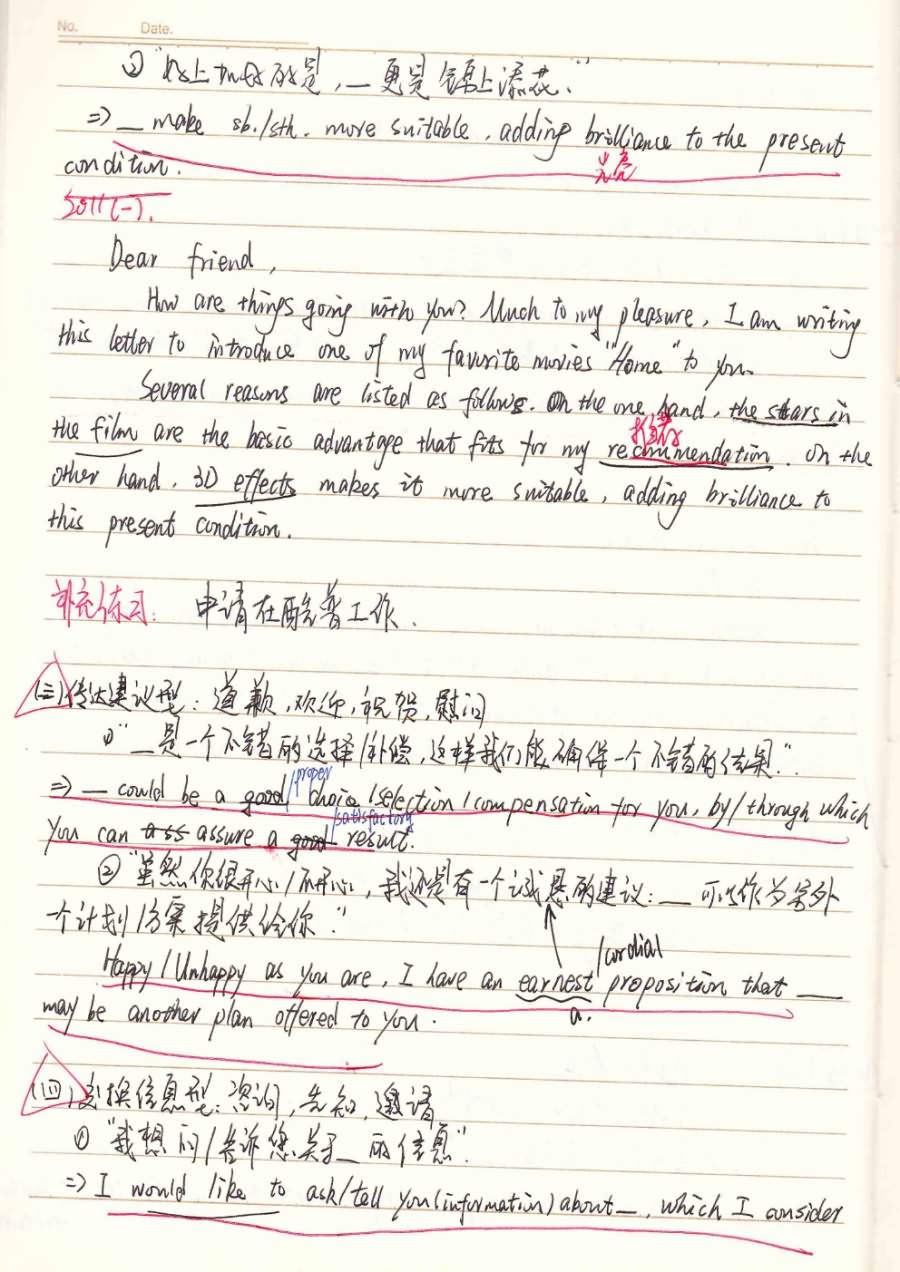 No. Date.
② "以上如此的是，_更是锦上添花."
=> _ make sb./sth. more suitable, adding brilliance to the present
光亮
condition.
2011(一).
Dear friend,
How are things going with you? Much to my pleasure, I am writing
this letter to introduce one of my favorite movies "Home" to you.
Several reasons are listed as follows. On the one hand, the stars in
推荐
the film are the basic advantage that fits for my recommendation. On the
other hand, 3D effects makes it more suitable, adding brilliance to
this present condition.
补充练习: 申请在酷普工作.
(三)传达建议型: 道歉,欢迎,祝贺,慰问
①"_是一个不错的选择/补偿,这样我们能确保一个不错的结果."
/proper
=> _ could be a good choice/selection/compensation for you, by/through which
/satisfactory
you can assure a good result.
②"虽然你很开心/不开心, 我还是有一个诚恳的建议: _ 可以作为另外
一个计划/方案提供给你."
/cordial
Happy/Unhappy as you are, I have an earnest proposition that _
a.
may be another plan offered to you.
(四)交换信息型: 咨询,告知,邀请
①"我想问/告诉您关于_的信息"
=> I would like to ask/tell you(information)about_, which I consider